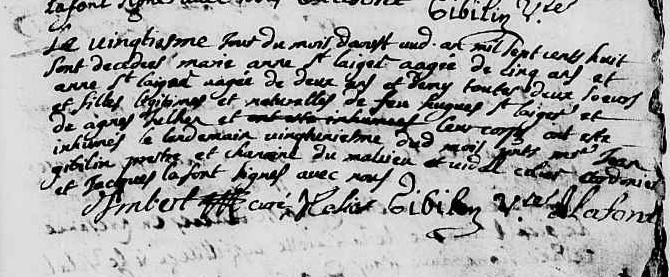 lafont signe avec nous
Gibilin Vre
Le vingtiesme Jour du mois daoust aud. an mil sept cents huit
sont decedees marie anne st laiger aagée de cinq ans et
anne st laiger aagée de deux ans et demy toutes deux soeurs
et filles legitimes et naturelles de feu hugues st laiger et
de agnes et ont este inhumees leur corps ont este
inhumés le lendemain vingtuniesme dud mois pnts mre Jean
gibilin prestre et du et vidal calier cordonier
et Jacques lafont signes avec nous
Imbert curé, Kalier Gibilin Vre Jlafont